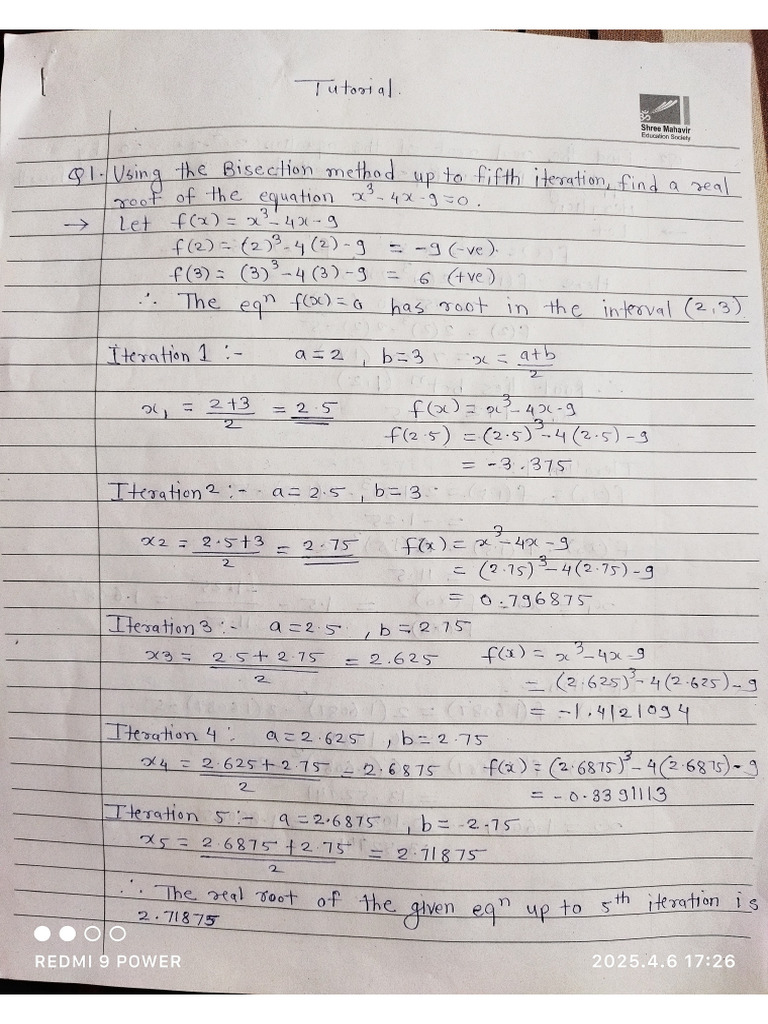 1
Tutorial.
Shree Mahavir
Education Society
Q1. Using the Bisection method up to fifth iteration, find a real
root of the equation x³-4x-9=0.
→ Let f(x) = x³-4x-9
f(2) = (2)³-4(2)-9 = -9 (-ve).
f(3) = (3)³-4(3)-9 = 6 (+ve)
∴ The eqⁿ f(x)=0 has root in the interval (2,3)
Iteration 1 :- a=2 , b=3 x = a+b/2
x₁ = 2+3/2 = 2.5 f(x) = x³-4x-9
f(2.5) = (2.5)³-4(2.5)-9
= -3.375
Iteration 2 :- a=2.5 , b=3
x2 = 2.5+3/2 = 2.75 f(x) = x³-4x-9
= (2.75)³-4(2.75)-9
= 0.796875
Iteration 3 :- a=2.5 , b=2.75
x3 = 2.5+2.75/2 = 2.625 f(x) = x³-4x-9
= (2.625)³-4(2.625)-9
= -1.4121094
Iteration 4 :- a=2.625 , b=2.75
x4 = 2.625+2.75/2 = 2.6875 f(x) = (2.6875)³-4(2.6875)-9
= -0.3391113
Iteration 5 :- a=2.6875 , b=-2.75
x5 = 2.6875+2.75/2 = 2.71875
∴ The real root of the given eqⁿ up to 5th iteration is
2.71875
REDMI 9 POWER
2025.4.6 17:26